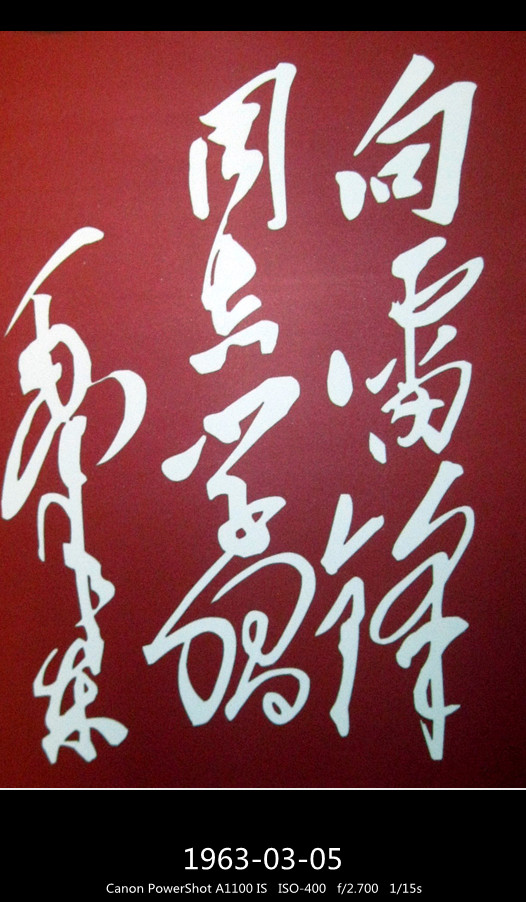 向雷锋
同志学习
毛泽东
1963-03-05
Canon PowerShot A1100 IS ISO-400 f/2.700 1/15s